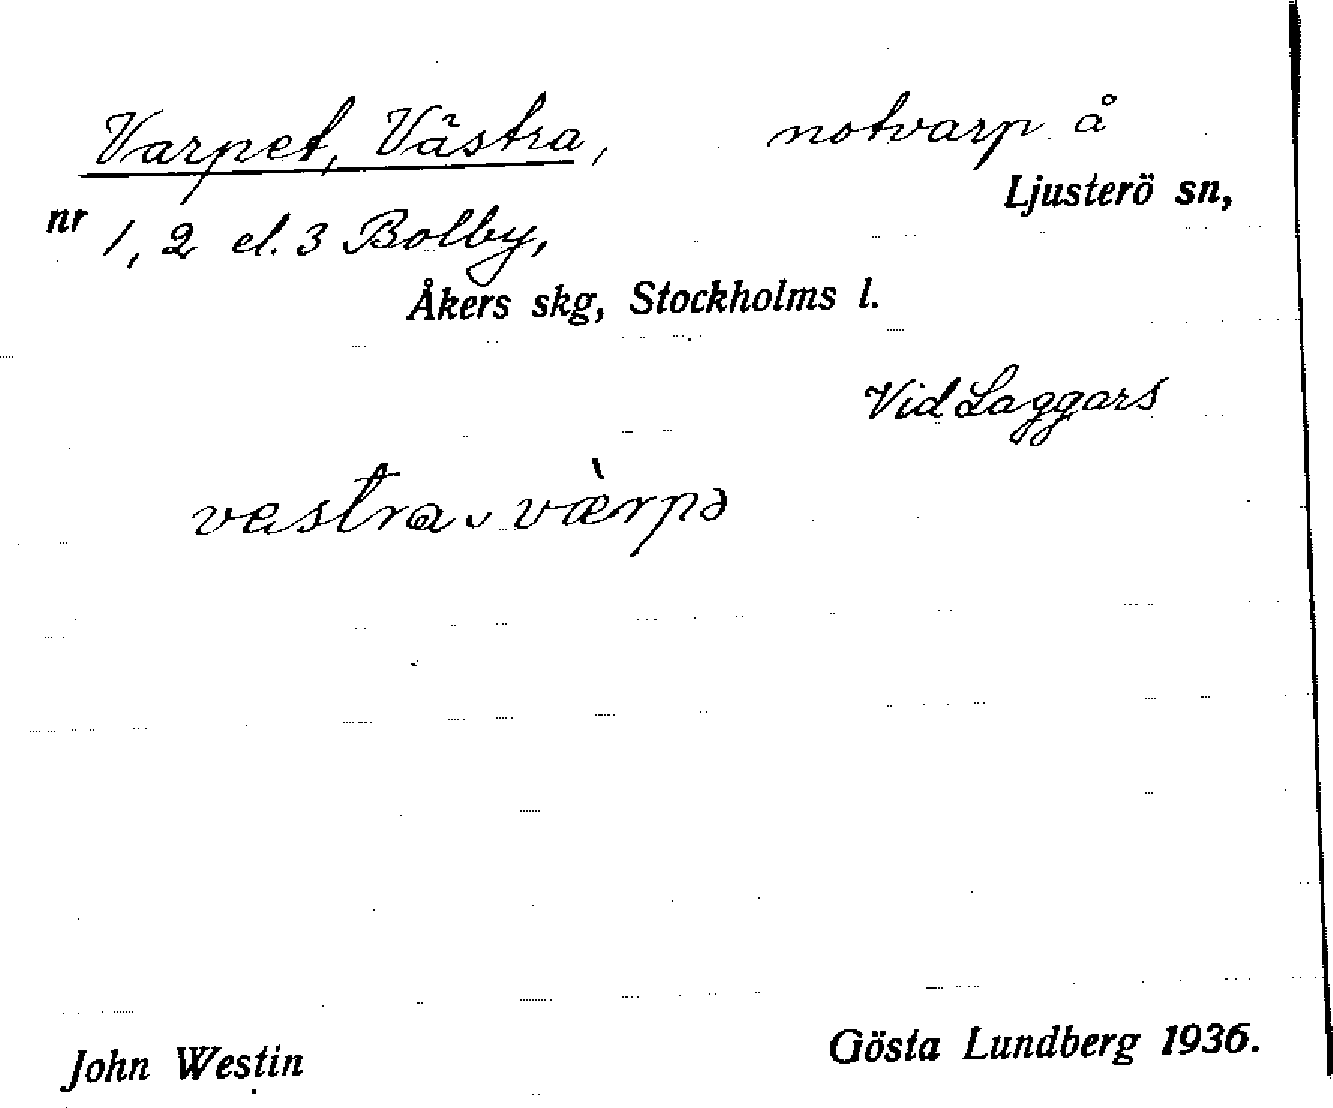 Varpet, Västra, notvarp å
Ljusterö sn,
nr 1, 2 el. 3 Bolby,
Åkers skg, Stockholms l.
Vid Laggars
vestra värpə
John Westin Gösta Lundberg 1936.